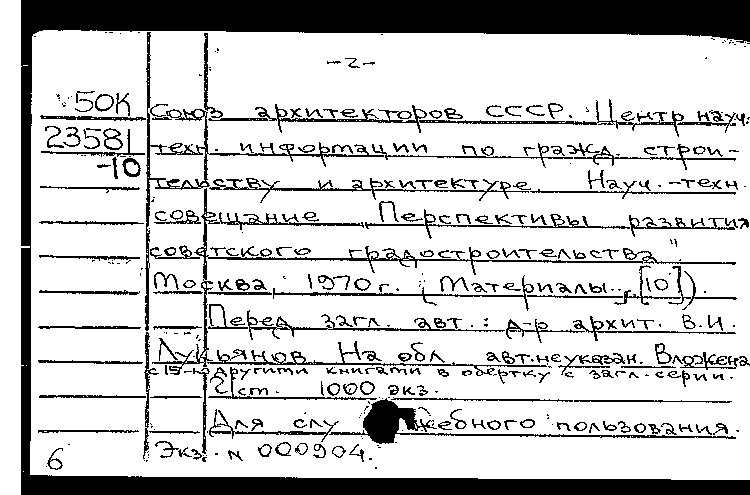 -2-
50К Союз архитекторов СССР. Центр науч.-
23581 техн. информации по гражд. строи-
-10 тельству и архитектуре. Науч.-техн.
совещание "Перспективы развития
советского градостроительства"
Москва, 1970 г. (Материалы..., [10]).
Перед загл. авт.: д-р архит. В.И.
Лукьянов. На обл. авт. не указан. Вложена
с 15-ю другими книгами в обертку с загл. серии.
2 ст. 1000 экз.
Для служебного пользования.
Экз. N 000904.
6